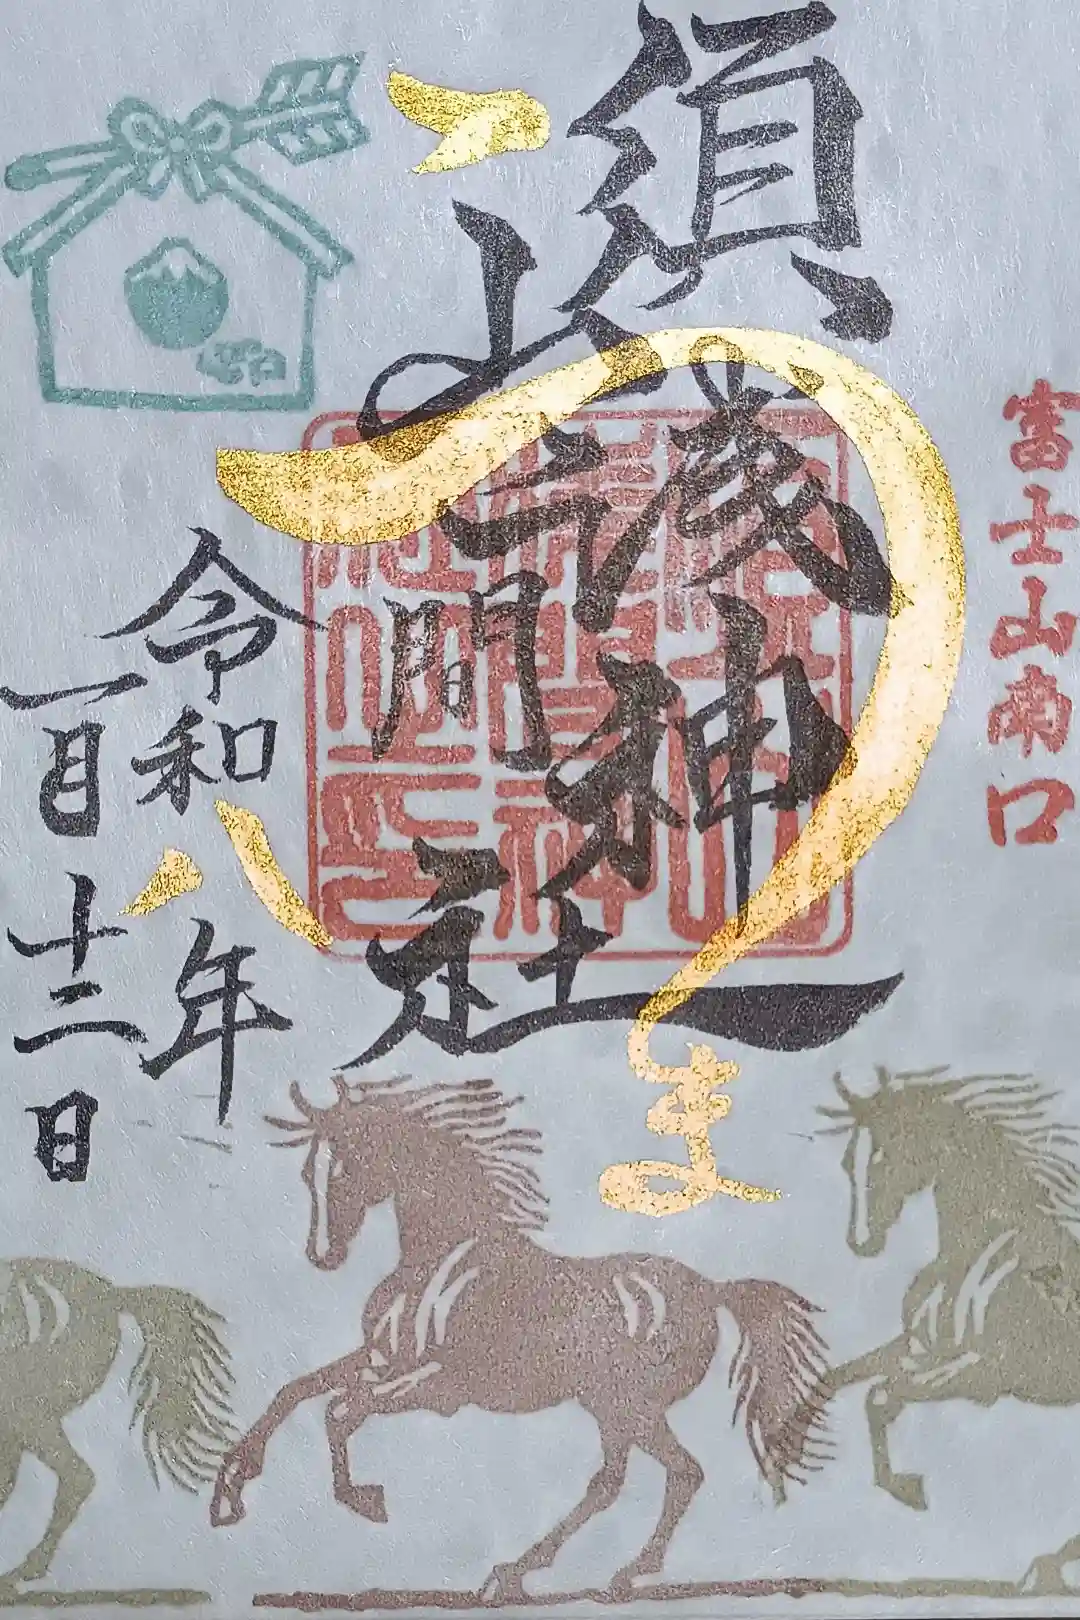 富士山南口
須山
浅間
神社
うま
令和八年
一月十二日